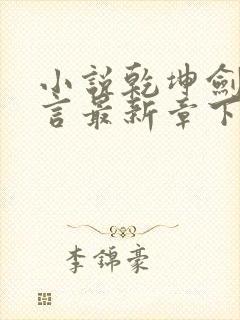 小說乾坤劍
言最新章下
李錦豪